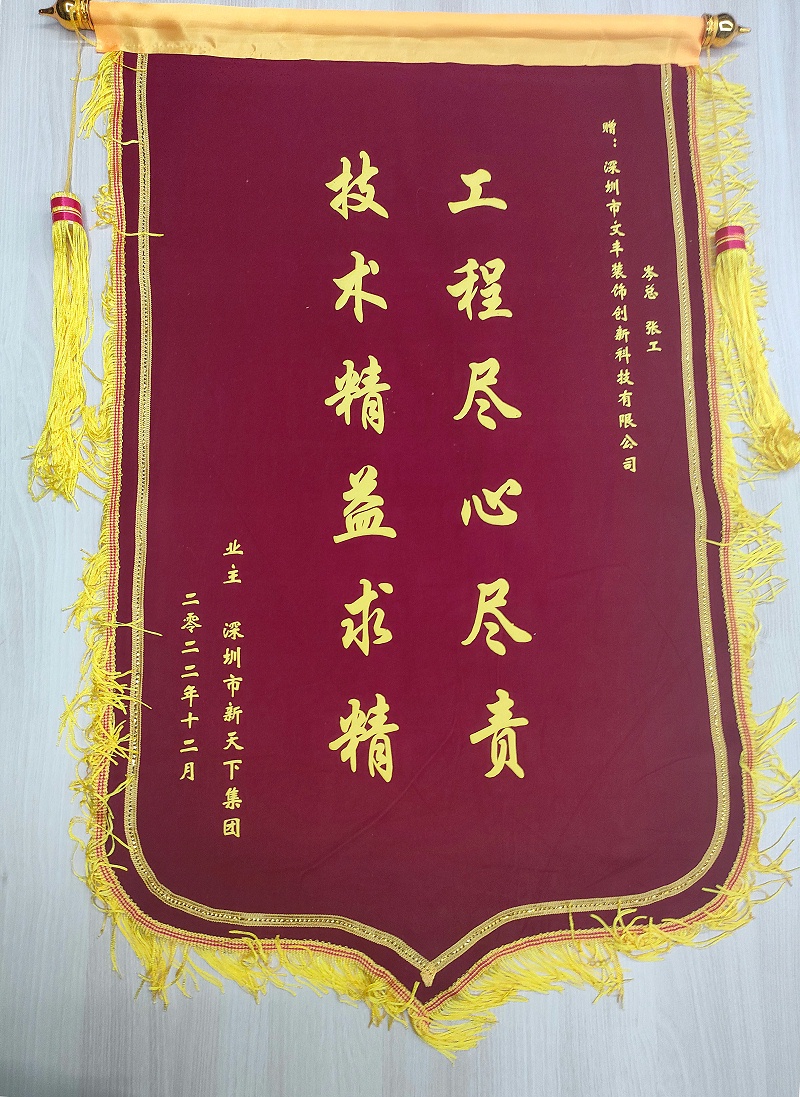 赠：深圳市文丰装饰创新科技有限公司
岑总 张工
工程尽心尽责
技术精益求精
业主 深圳市新天下集团
二零二二年十二月